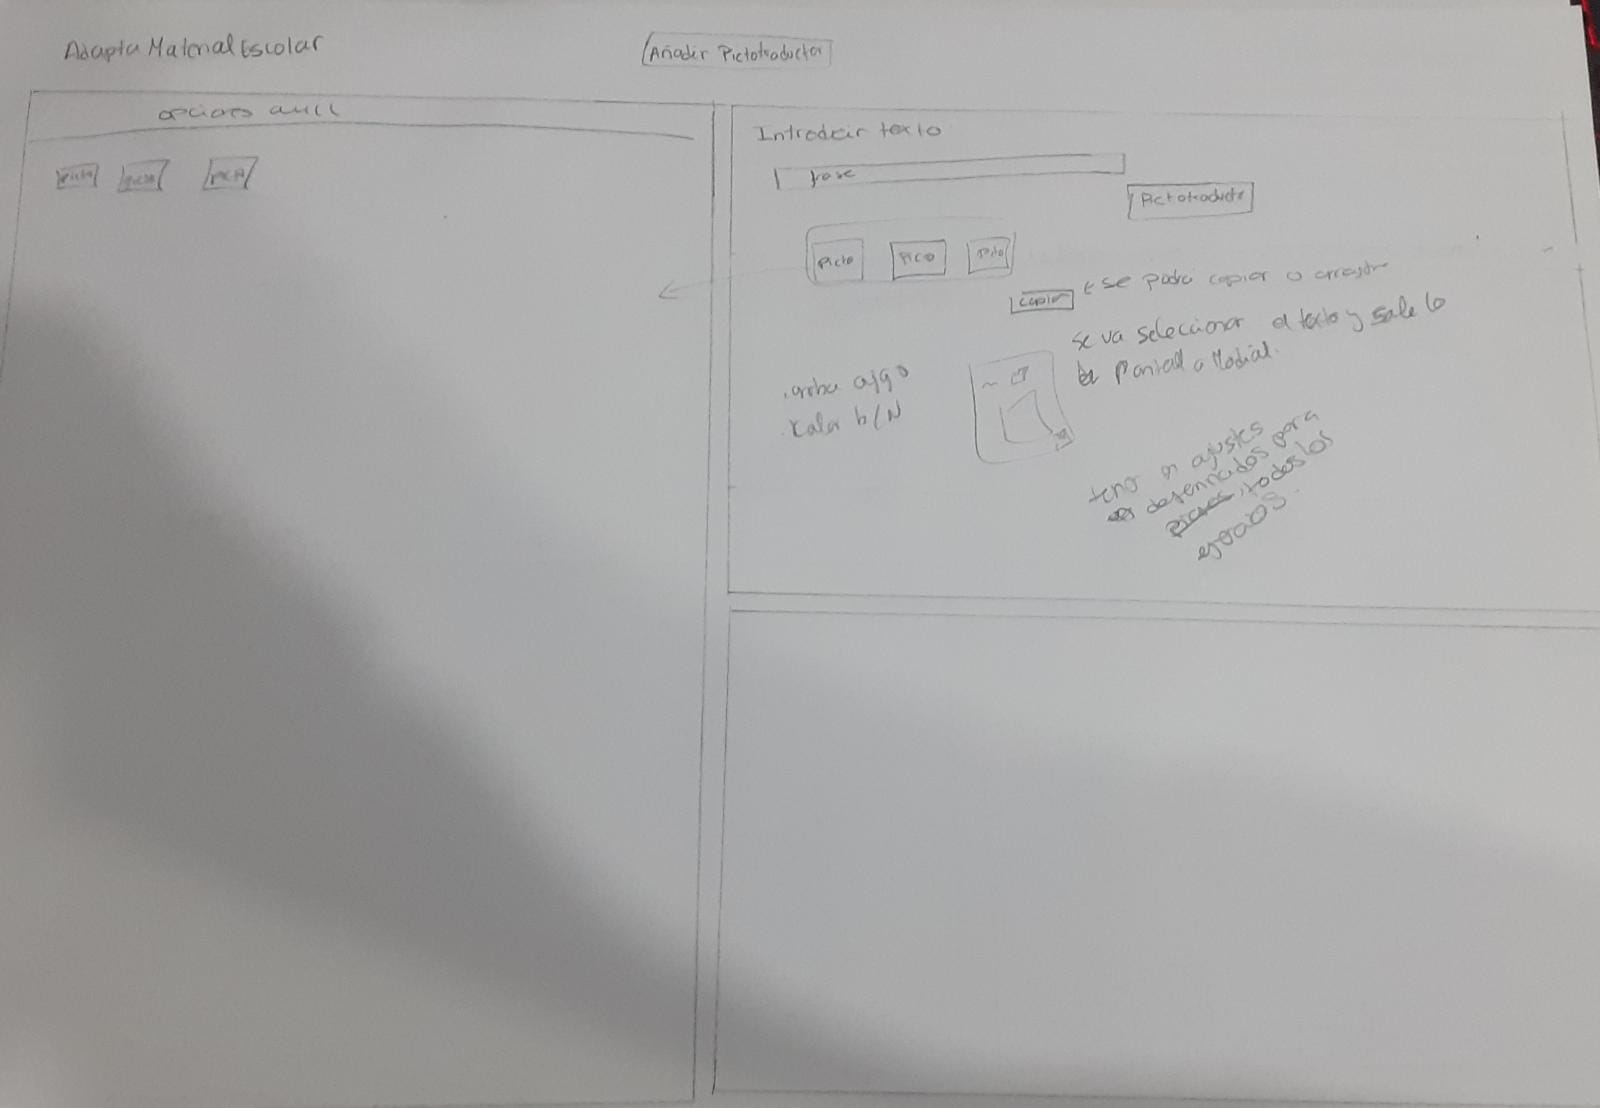 Adapta Material Escolar
Añadir Pictotraductor
opciones
Picto Picto Picto
Introducir texto
frase
Pictotraductor
Picto Picto Picto
Copiar se podrá copiar o arrastrar
se va seleccionar el texto y sale la
Pantall o Modial.
arriba abajo
Color b/N
tener en ajustes
definidos para
todos los